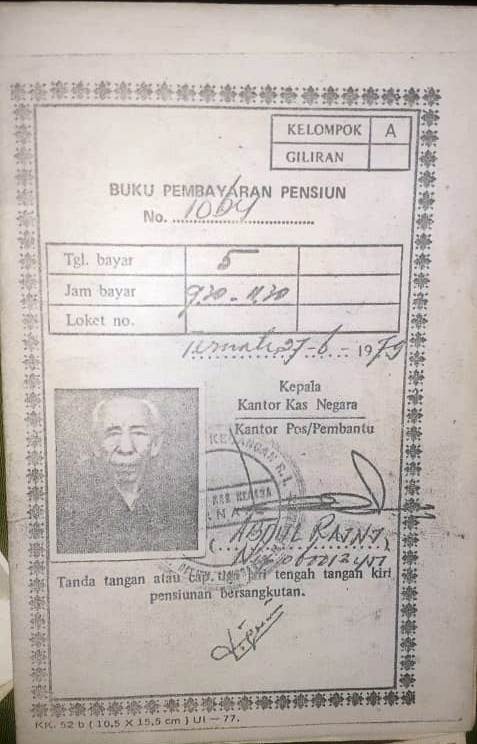 KELOMPOK A
GILIRAN
BUKU PEMBAYARAN PENSIUN
No. 1064
Tgl. bayar 5
Jam bayar 9.30 - 11.30
Loket no.
Ternate, 27-6-1979
Kepala
Kantor Kas Negara
Kantor Pos/Pembantu
KEUANGAN R.I.
KAS NEGARA
Tanda tangan atau cap tiga jari tengah tangan kiri
pensiunan bersangkutan.
KK. 52 b ( 10,5 X 15,5 cm ) UI — 77.